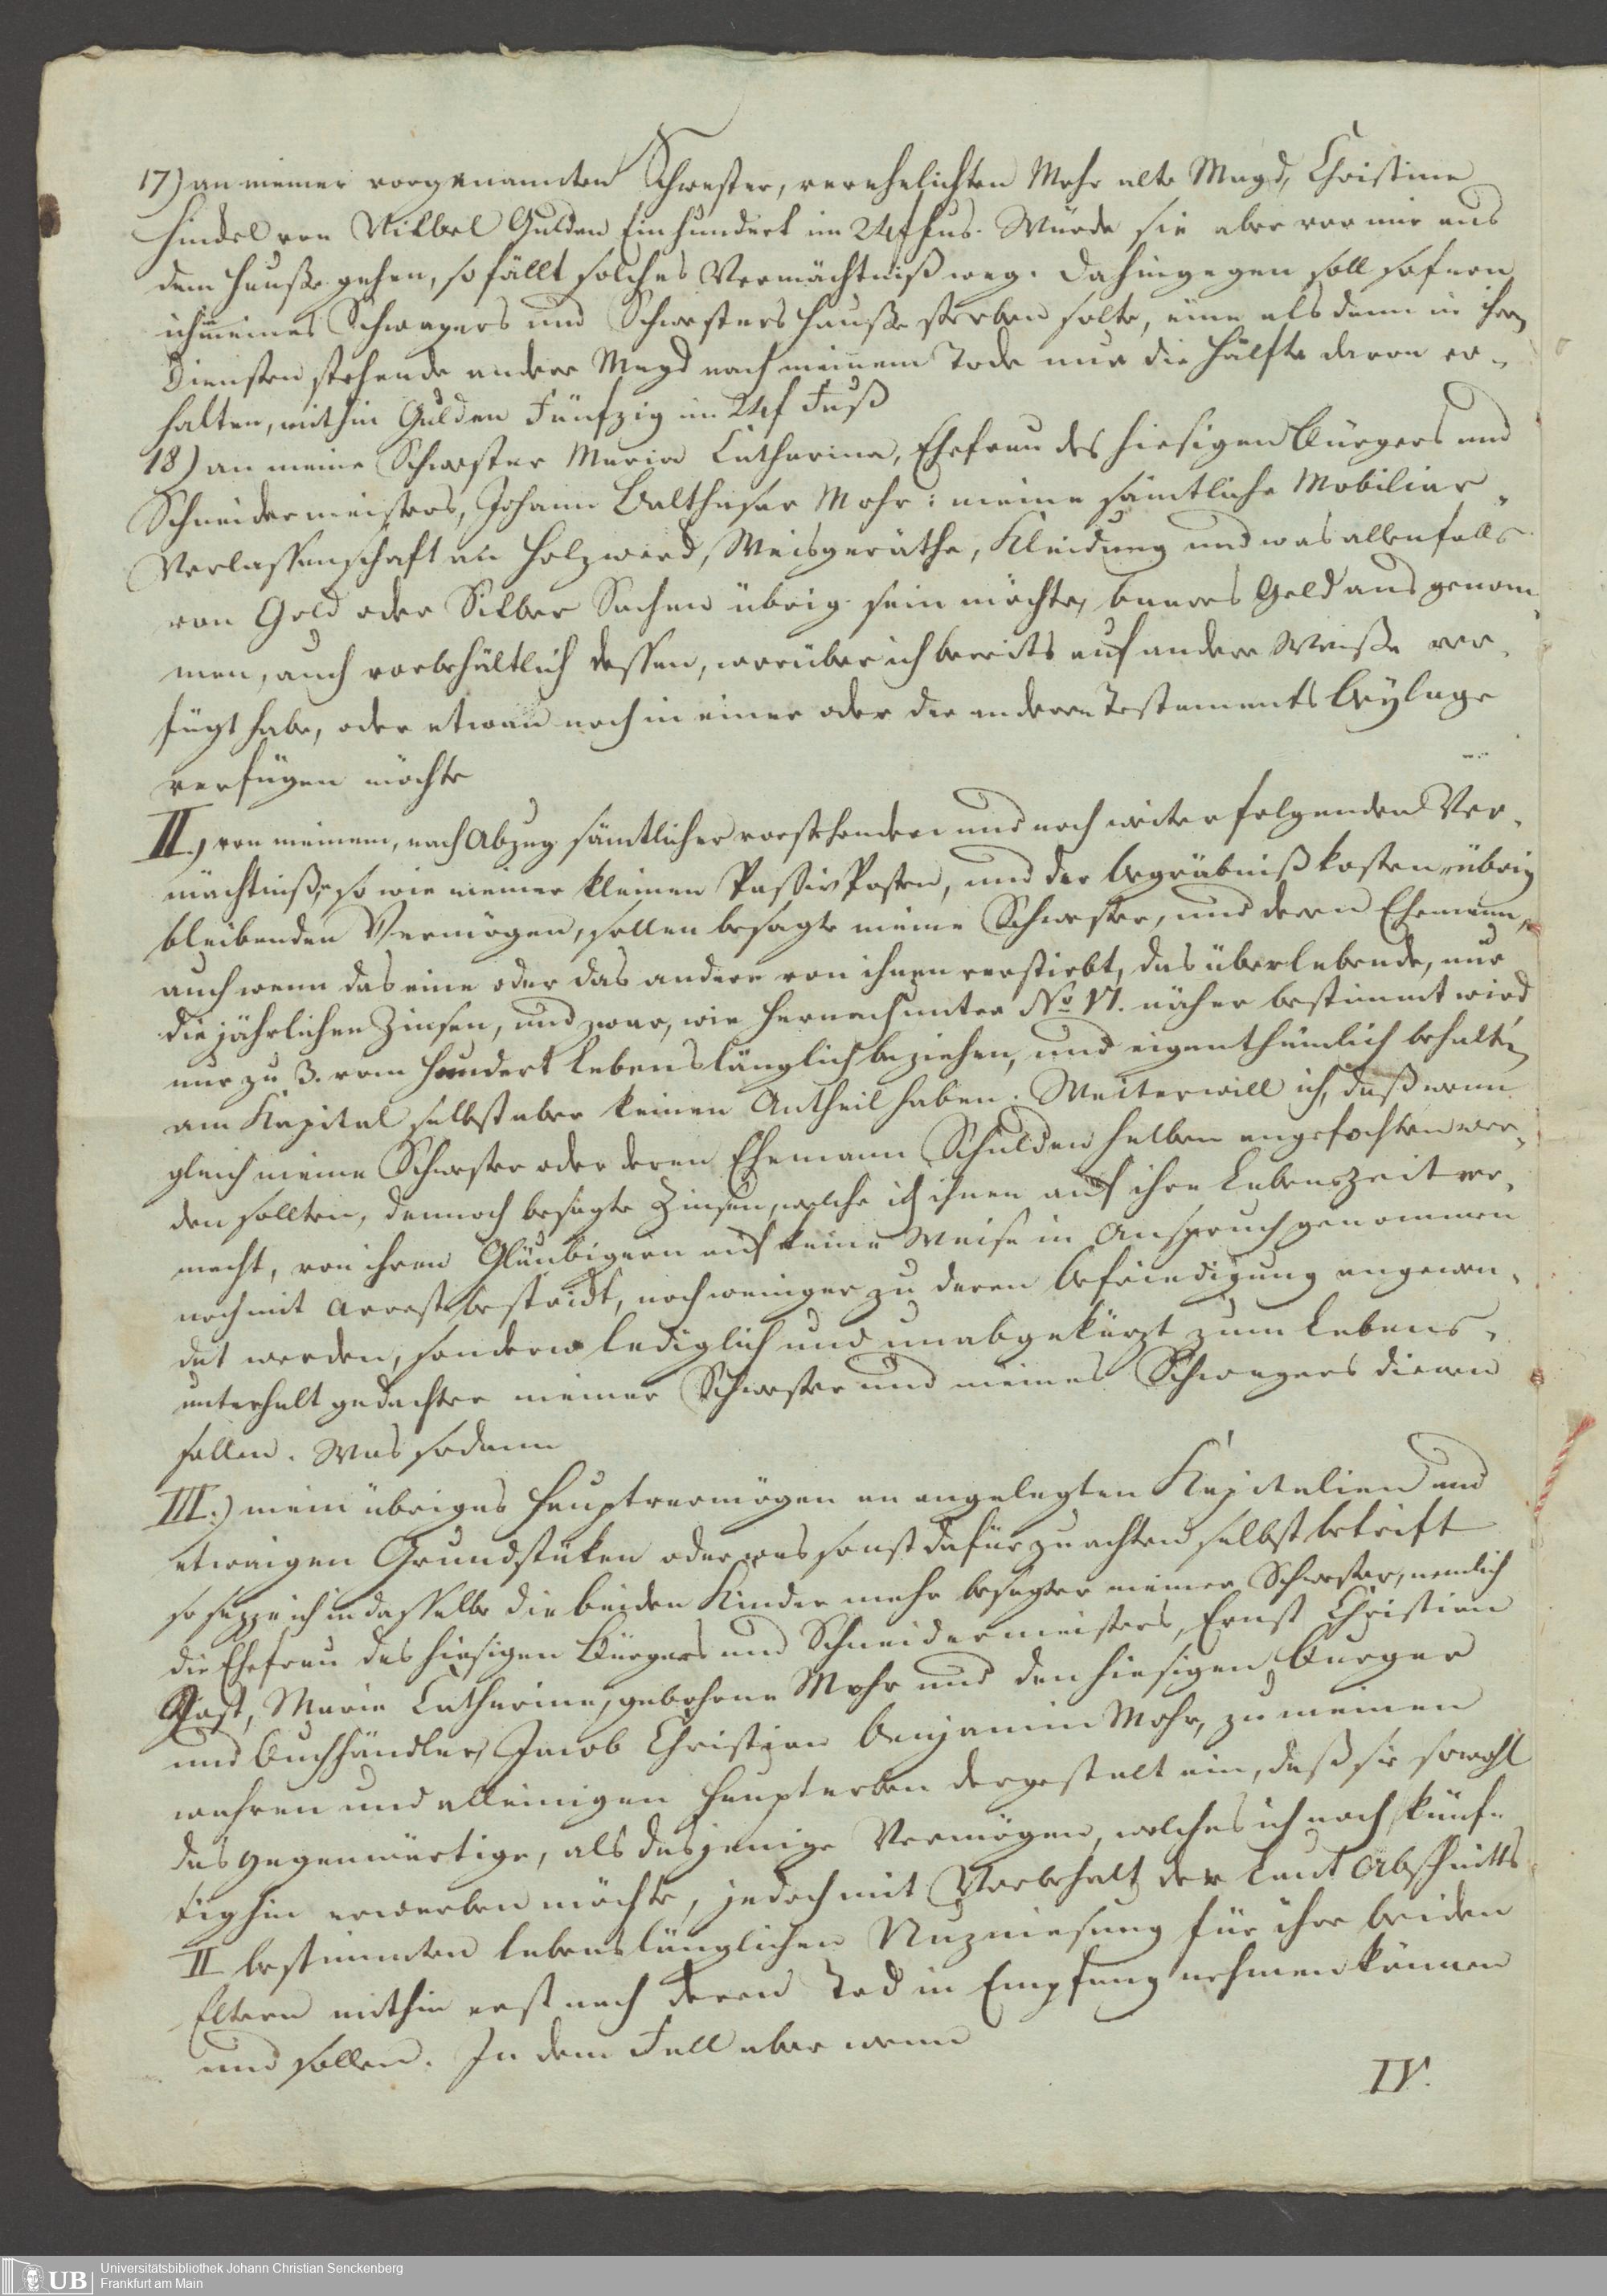 17) an meiner vorgenannten Schwester, verehelichten Mohr alte Magd, Christine
Hindel von Vilbel Gulden Einhundert im 24f Fus. Würde sie aber vor mir aus
dem Hauße gehen, so fällt solches Vermächtniß weg. Dahingegen soll sofern
ich meines Schwagers und Schwesters Hauße sterben solte, eine alsdann in ihren
Diensten stehende andere Magd nach meinem Tode nur die Hälfte davon er-
halten, mithin Gulden Fünfzig im 24f Fuß
18) an meine Schwester Maria Catharina, Ehefrau des hiesigen Bürgers und
Schneidermeisters, Johann Balthasar Mohr: meine sämtliche Mobiliar-
Verlassenschaft an Holzwerd, Weisgeräthe, Kleidung und was allenfalls
von Gold oder Silber Sachen übrig sein möchte, baares Geld ausgenom-
men, auch vorbehältlich dessen, worüber ich bereits auf andere Weiße ver-
fügt habe, oder etwan noch in einer oder der anderen Testaments Beylage
verfügen möchte
II.) von meinem, nach Abzug sämtlicher vorstehender und noch weiter folgenden Ver-
mächtniße, so wie meiner kleinen PassivPosten, und der Begräbnißkosten übrig
bleibenden Vermögen, sollen besagte meine Schwester, und deren Ehemann,
auch wenn das eine oder das andere von ihnen verstirbt, das überlebende, nur
die jährlichen Zinsen, und zwar, wie hernach unter No VI. näher bestimmt wird
nur zu 3. vom Hundert Lebenslänglich beziehen, und eigenthümlich behalten
am Kapital selbst aber keinen Antheil haben. Weiter will ich, daß wenn
gleich meine Schwester oder deren Ehemann Schulden halben angefochten wer-
den sollten, dennoch besagte Zinsen, welche ich ihnen auf ihre Lebenszeit ver-
macht, von ihren Gläubigern auf keine Weise in Anspruch genommen
noch mit Arrest bestrickt, noch weniger zu deren Befriedigung angewen-
det werden, sondern lediglich und unabgekürzt zum Lebens-
unterhalt gedachter meiner Schwester und meines Schwagers dienen
sollen. Was sodann
III.) mein übriges Hauptvermögen an angelegten Kapitalien und
etwaigen Grundstüken oder was sonst dafür zu achten selbst betrift
so sezze ich in dasselbe die beiden Kinder mehr besagter meiner Schwester, nemlich
die Ehefrau des hiesigen Bürgers und Schneidermeisters, Ernst Christian
Rast, Maria Catharina, gebohrne Mohr und den hiesigen Burger
und Buchhändler, Jacob Christian Benjamin Mohr, zu meinen
wahren und alleinigen Haupterben dergestalt ein, daß sie sowohl
das gegenwärtige, als dasjenige Vermögen, welches ich noch künf-
tighin erwerben möchte, jedoch mit Vorbehalt der laut Abschnitts
II bestimmten lebenslänglichen Nuzniesung für ihre beiden
Eltern mithin erst nach deren Tod in Empfang nehmen können
und sollen. In dem Fall aber wenn
IV.
UB Universitätsbibliothek Johann Christian Senckenberg
Frankfurt am Main